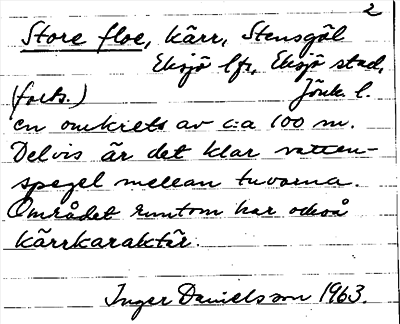 2
Store floe, kärr, Stensgöl
Eksjö lfs, Eksjö stad,
(forts.) Jönk. l.
en omkrets av c:a 100 m.
Delvis är det klar vatten-
spegel mellan tuvorna.
Området runtom har också
kärrkaraktär.
Inger Danielsson 1963.